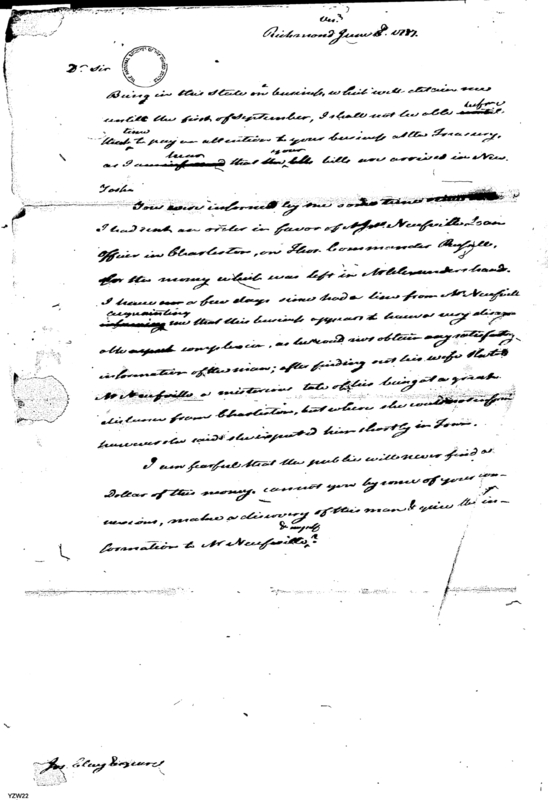 Vir.
Richmond June 8. 1787.
Dr Sir
Being in this State on business, which will detain me
untill the first of September, I shall not be able before
that time to pay an attention to your business at the Treasury,
as I hear that your bills are arrived in New
York.
You were informed by me some time
I had sent an order in favor of Neufville, an
officer in Charleston, on Commander
for the money which was left in Mr Alexanders hand.
I have a few days since had a line from Mr Neufville
acquainting me that this business appears to have a very disagre
able complexion, as he could not obtain any satisfactory
information of the man; after finding out his wife
Mr Neufville a misterious tale of his being at a great
distance from Charleston, but where she could not inform
however she said she expected him shortly in Town.
I am fearful that the public will never find a
Dollar of this money. cannot you by some of your con-
nexions, make a discovery of this man & give the in-
formation to Mr Neufville & myself?
YZW22